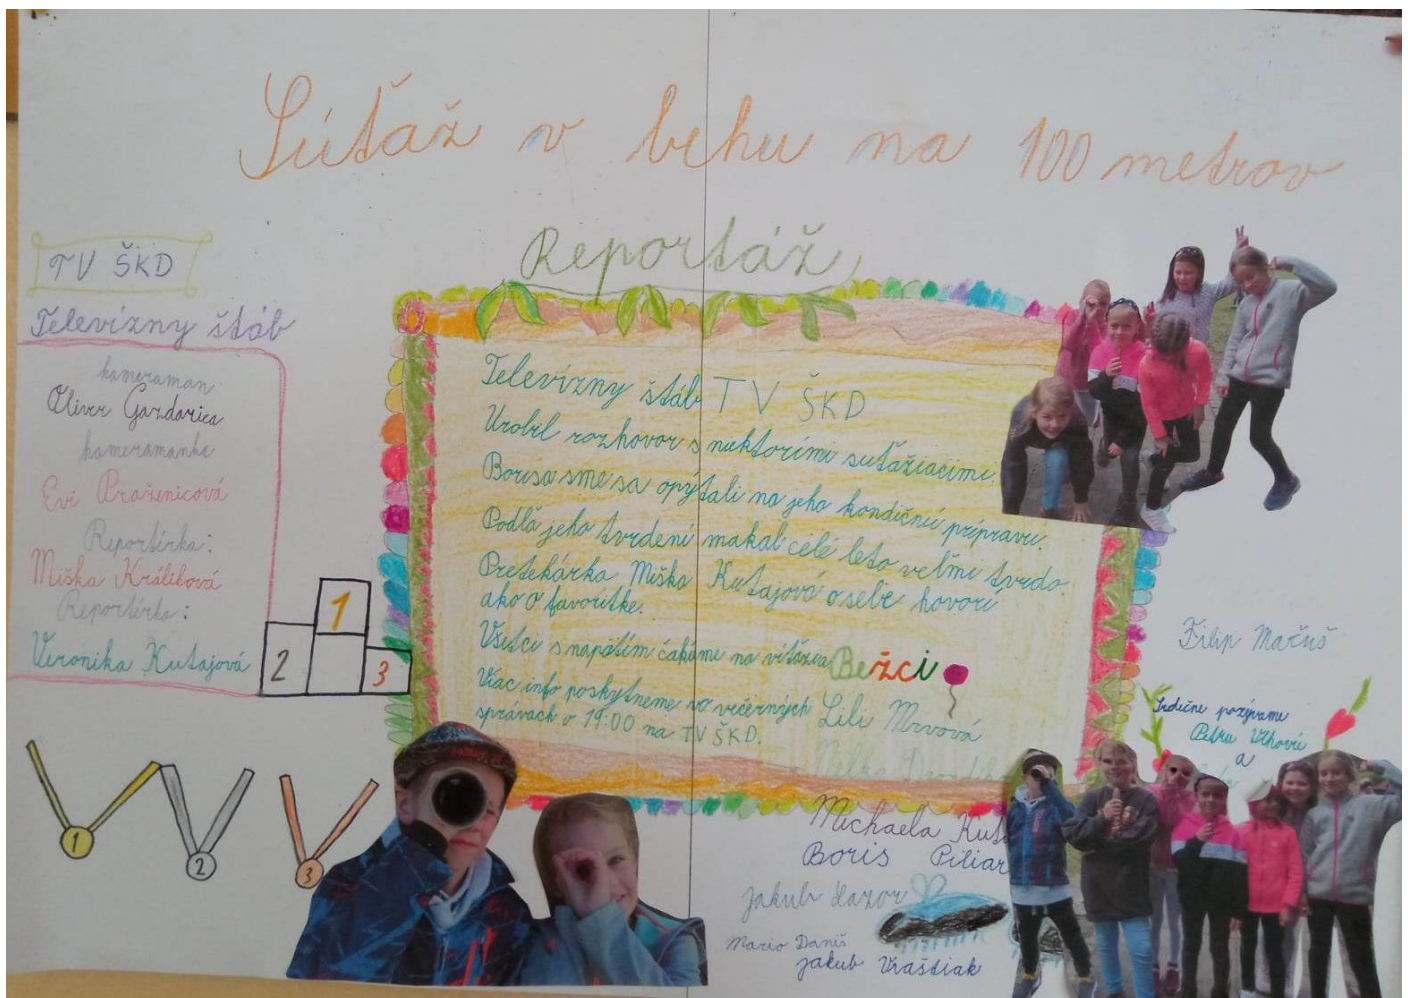 Súťaž v behu na 100 metrov
Reportáž
TV ŠKD
Televízny štáb
kameraman
Oliver Gazdarica
kameramanka
Evi Praženicová
Reportérka:
Miška Králiková
Reportérka:
Veronika Kutajová
1
2
3
1
2
3
Televízny štáb TV ŠKD
Urobil rozhovor s niektorími suťažiacimi.
Borisa sme sa opýtali na jeho kondičnú prípravu.
Podľa jeho tvrdení makal celé leto veľmi tvrdo.
Pretekárka Miška Kutajová o sebe hovorí
ako o favoritke.
Všetci s napätím čakáme na víťaza
Viac info poskytneme vo večerných
správach o 19:00 na TV ŠKD.
Bežci
Lili Mrvová
Michaela
Boris Piliar
Jakub Lazor
Mario Daniš
Jakub Vraštiak
Filip Mačuš
Srdečne pozývame
Petru
a